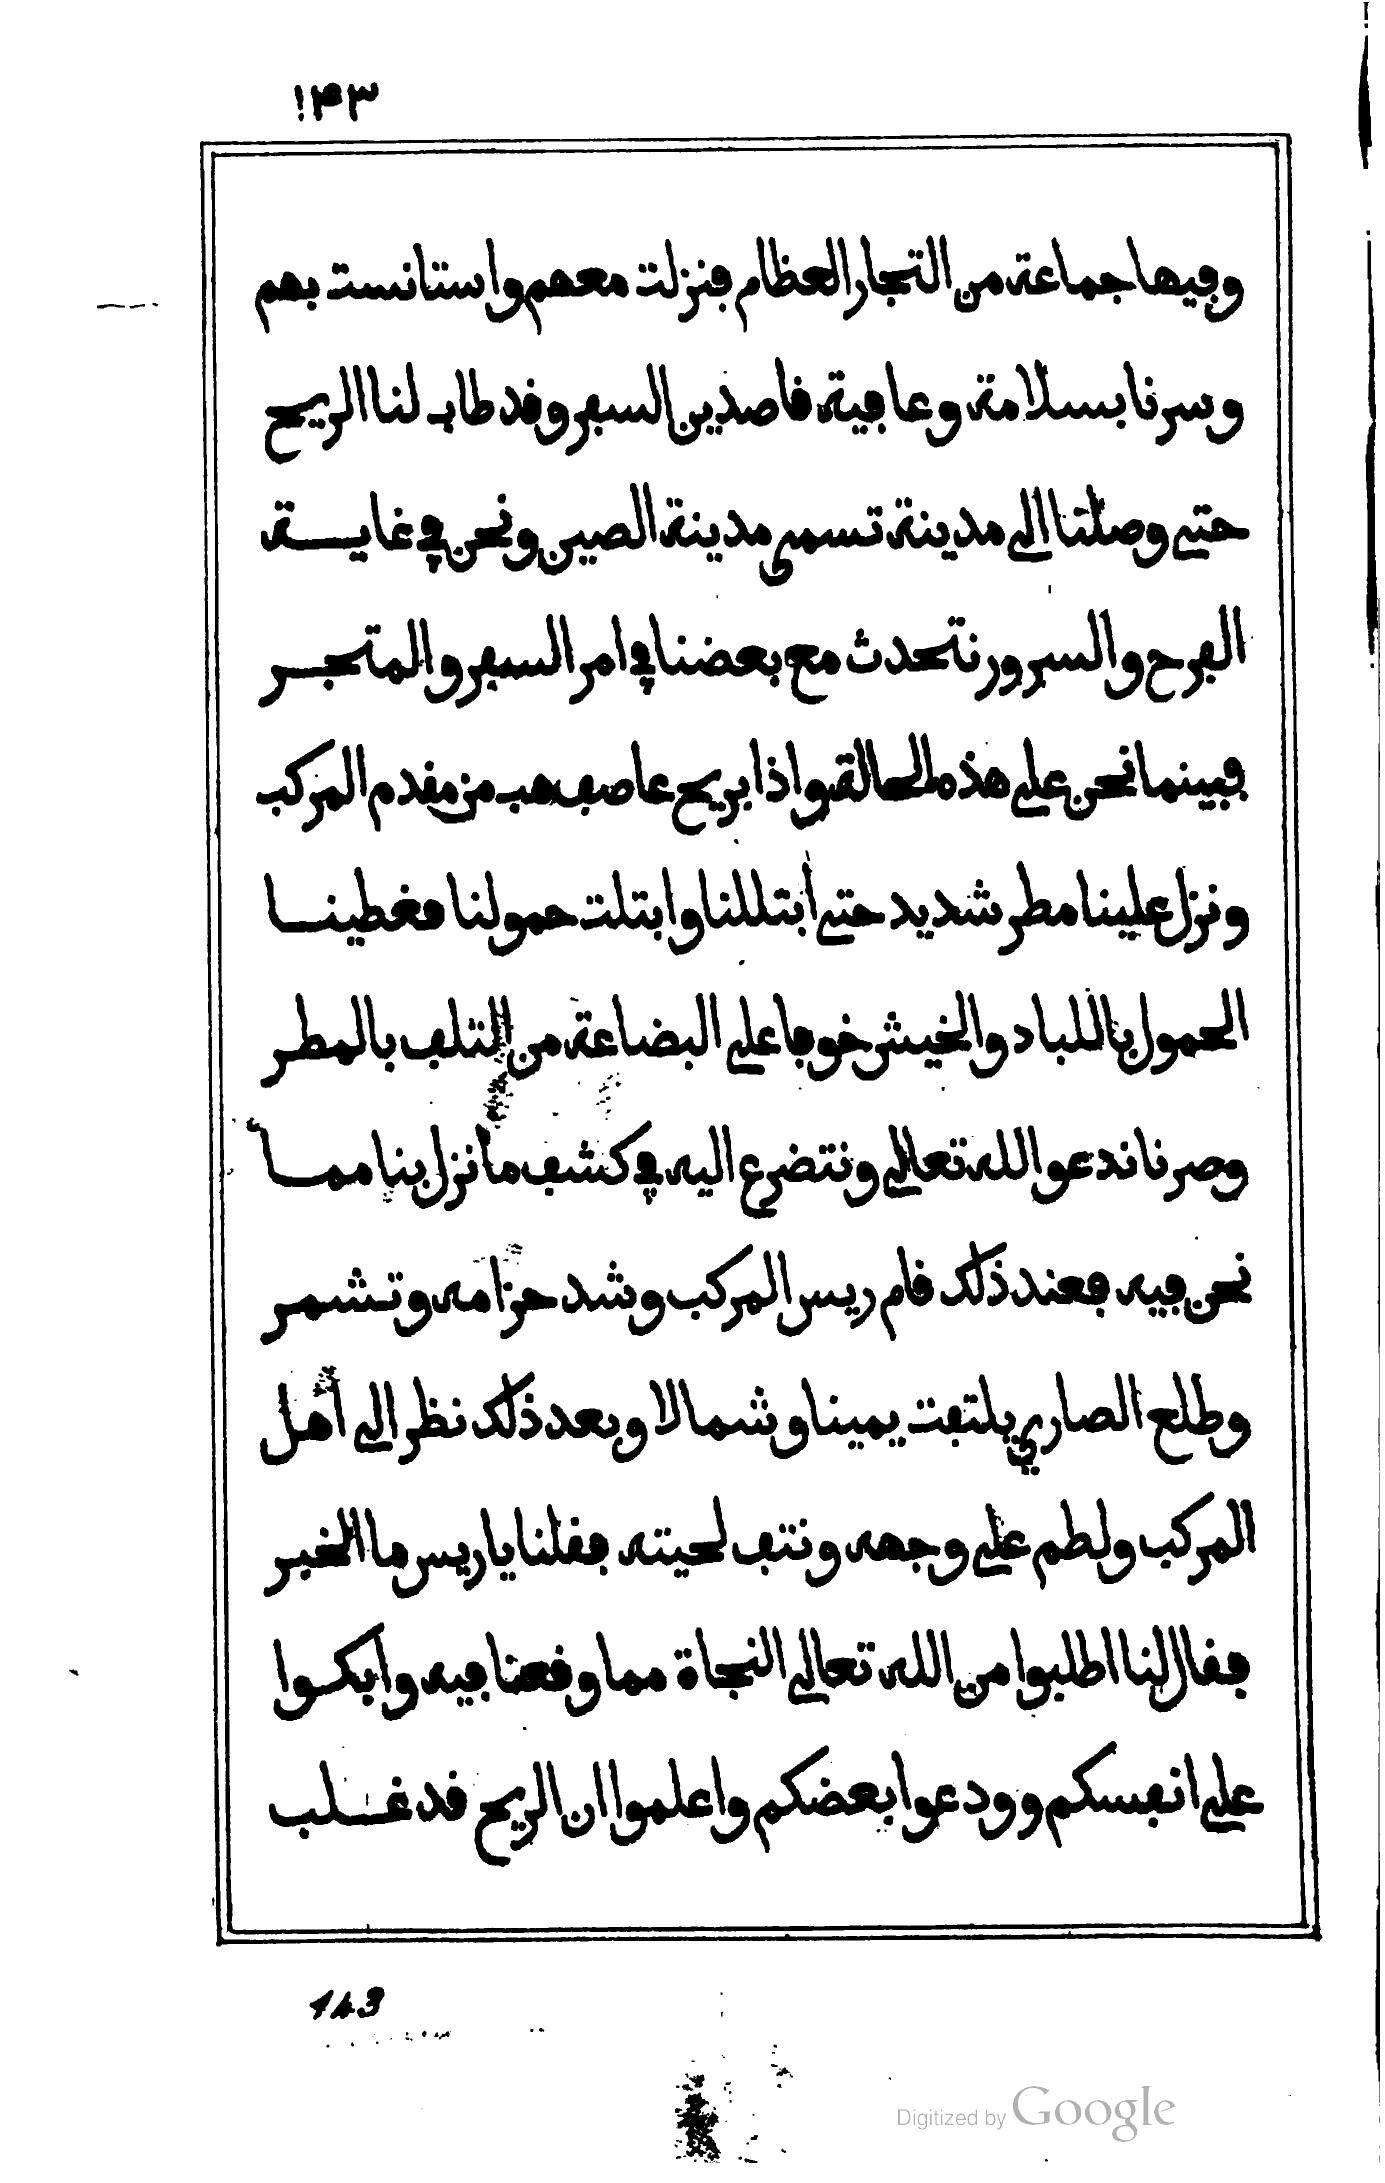 ١٤٣
وفيها جماعة من التجار العظام فنزلت معهم واستانست بهم
وسرنا بسلامة وعافية قاصدين السفر وقد طاب لنا الريح
حتى وصلنا الى مدينة تسمى مدينة الصين ونحن في غايـــة
الفرح والسرور نتحدث مع بعضنا في امر السفر والمتجـــر
فبينما نحن على هذه الحالة واذا بريح عاصف هب من مقدم المركب
ونزل علينا مطر شديد حتى ابتللنا وابتلت حمولنا فغطينـــا
الحمول باللباد والخيش خوفا على البضاعة من التلف بالمطـر
وصرنا ندعو الله تعالى ونتضرع اليه في كشف ما نزل بنا ممـــا
نحن فيه فعند ذلك قام ريس المركب وشد حزامه وتشمـر
وطلع الصاري يلتفت يمينا وشمالا وبعد ذلك نظر الى اهل
المركب ولطم على وجهه ونتف لحيته فقلنا يا ريس ما الخبـر
فقال لنا اطلبوا من الله تعالى النجاة مما وقعنا فيه وابكـوا
على انفسكم وودعوا بعضكم واعلموا ان الريح قد غـــلب
143
Digitized by Google